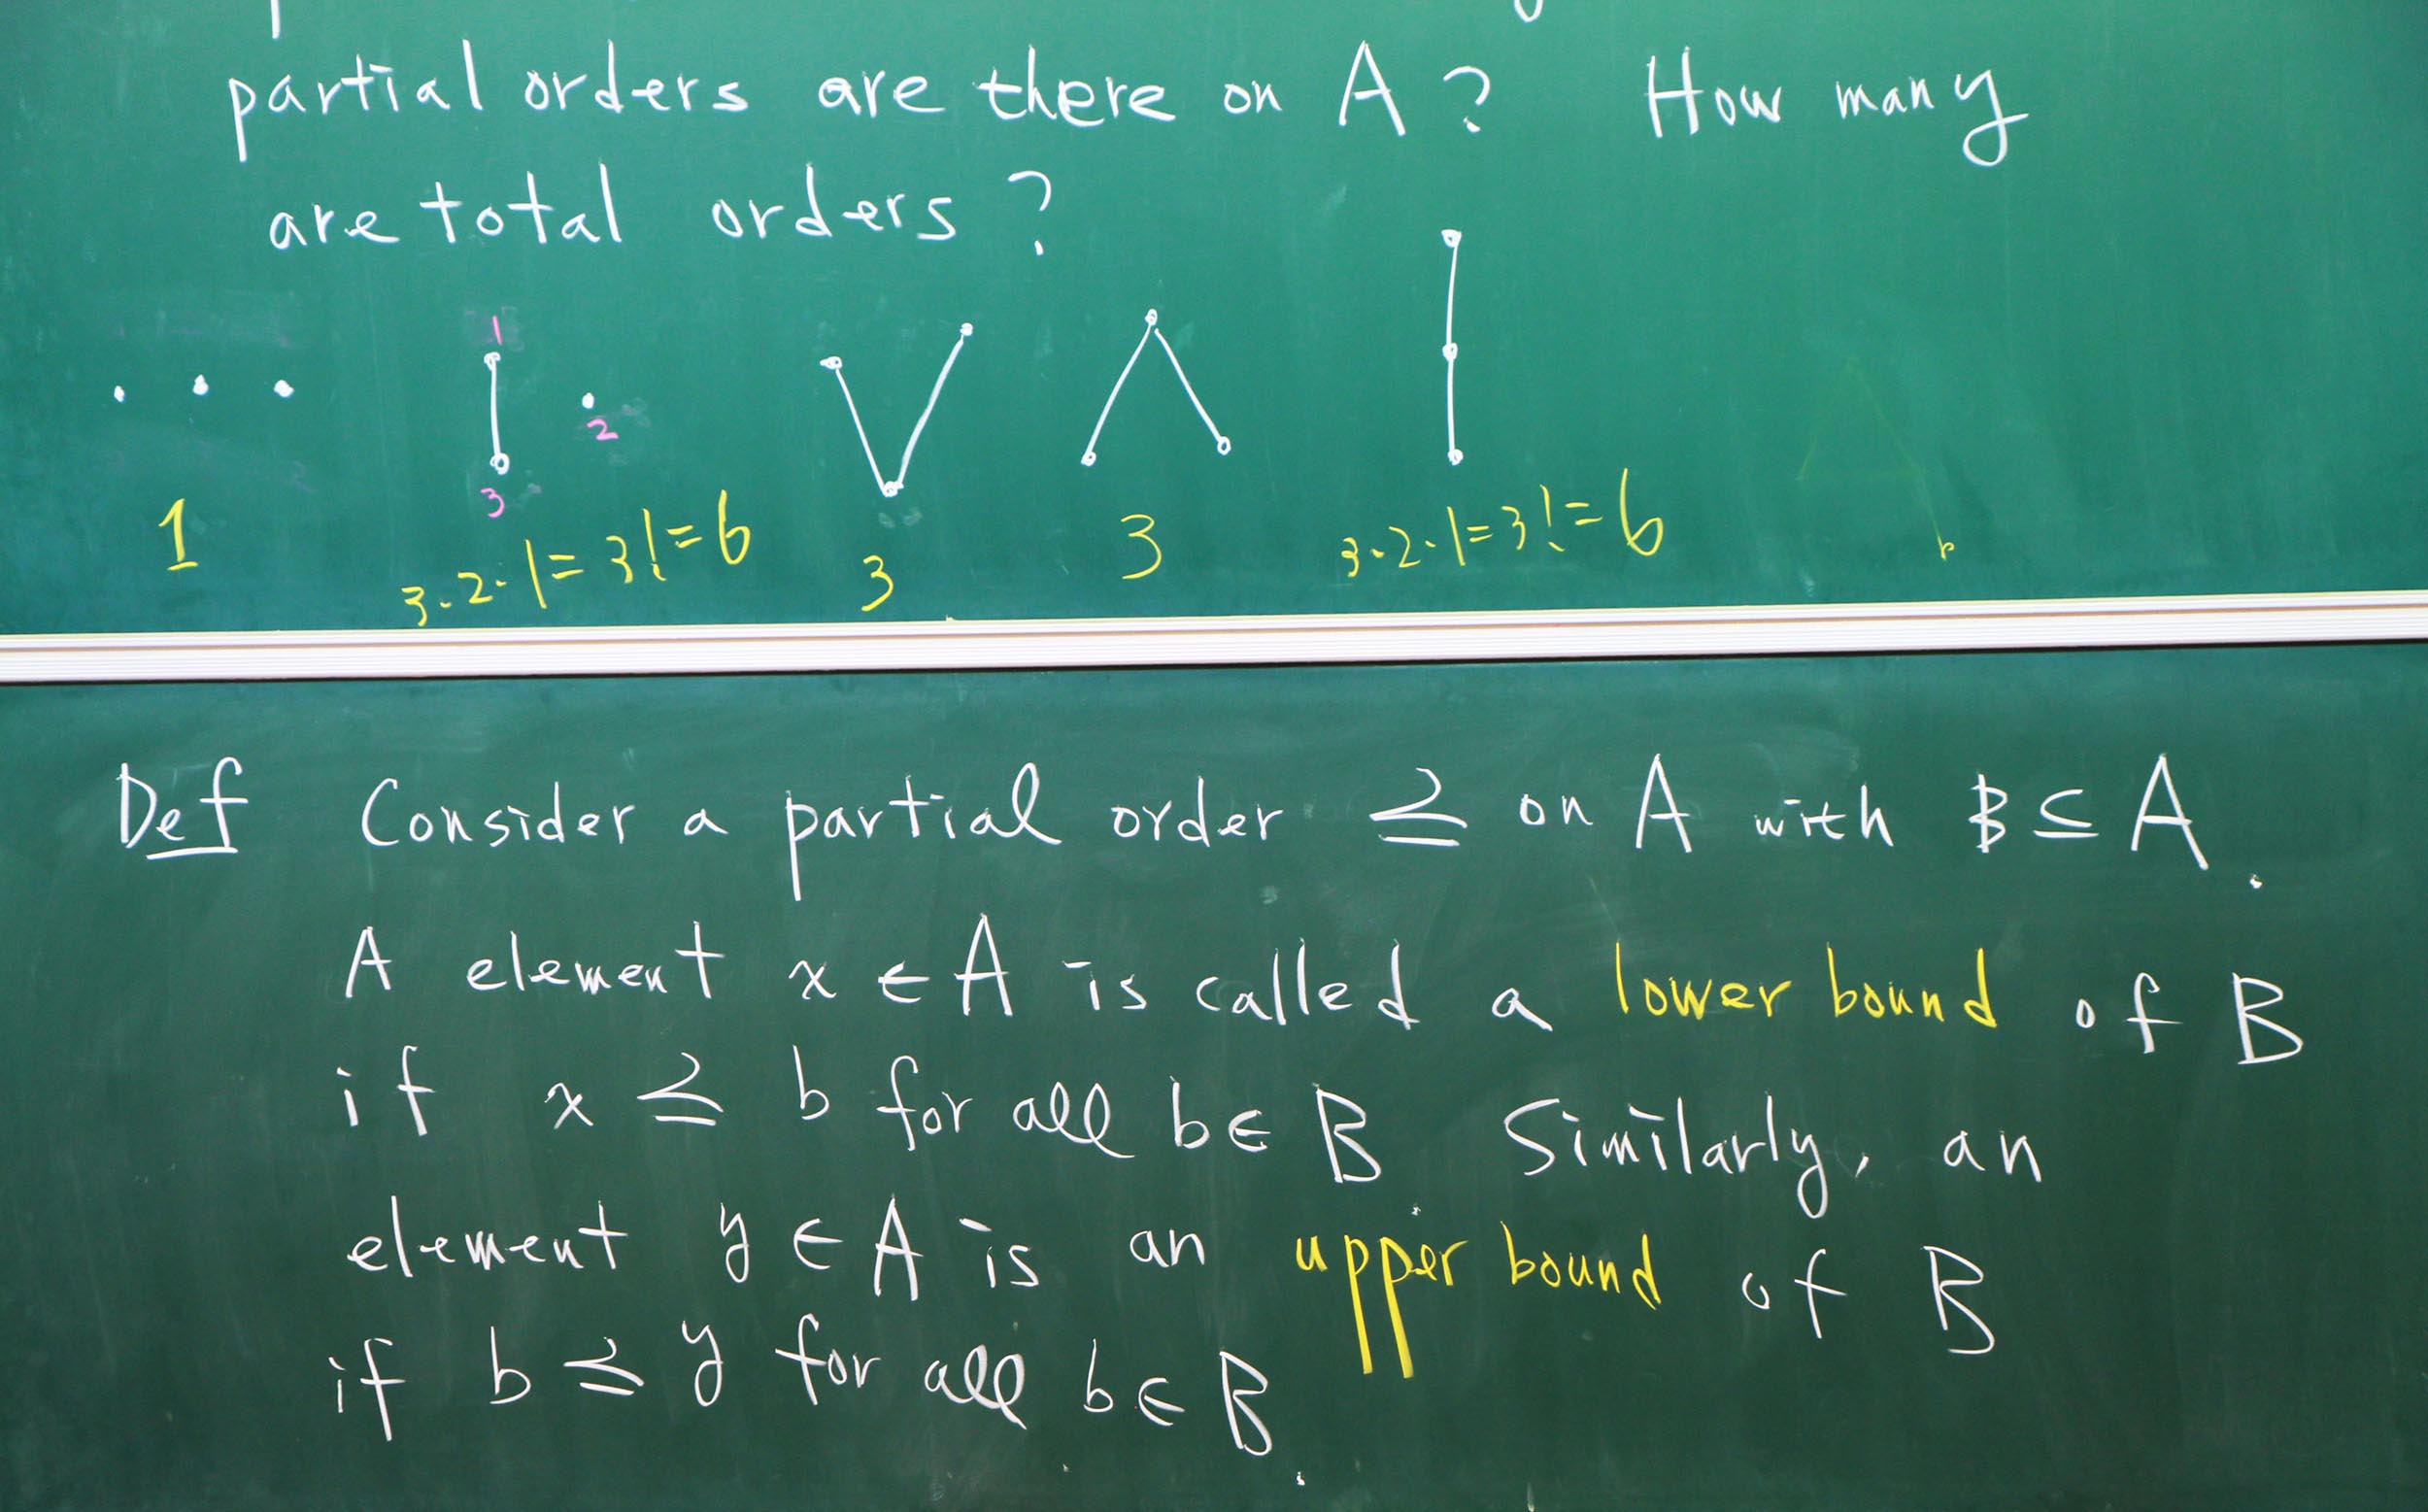 partial orders are there on A? How many
are total orders?
1
2
3
1 3·2·1=3!=6 3 3 3·2·1=3!=6
Def Consider a partial order ≼ on A with B ⊆ A.
A element x ∈ A is called a lower bound of B
if x ≼ b for all b ∈ B Similarly, an
element y ∈ A is an upper bound of B
if b ≼ y for all b ∈ B.